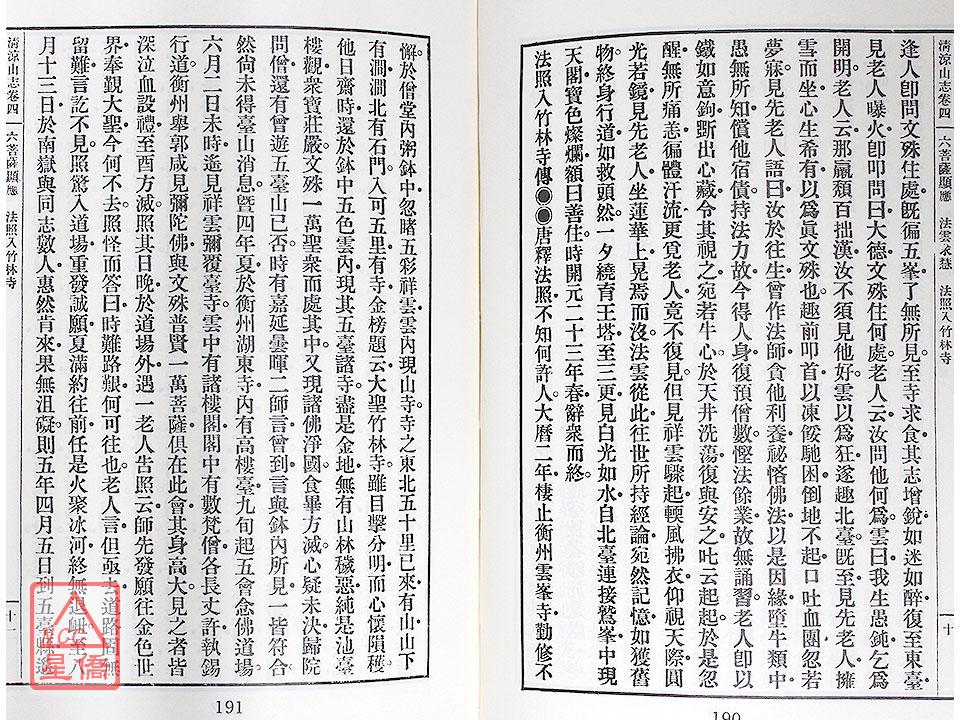 清涼山志卷四 六菩薩顯應 法雲求慧 法照入竹林寺 十
逢人卽問文殊住處旣徧五峯了無所見至寺求食其志增銳如迷如醉復至東臺
見老人曝火卽叩問曰大德文殊住何處老人云汝問他何爲雲曰我生愚鈍乞爲
開明老人云那羸頹百拙漢汝不須見他好雲以爲狂遂趣北臺旣至見先老人擁
雪而坐心生希有以爲眞文殊也趣前叩首以凍餒馳困倒地不起口吐血團忽若
夢寐見先老人語曰汝於往生曾作法師食他利養祕悋佛法以是因緣墮牛類中
愚無所知償他宿債持法力故今得人身復預僧數慳法餘業故無誦習老人卽以
鐵如意鉤斲出心藏令其視之宛若牛心於天井洗蕩復與安之吐云起起於是忽
醒無所痛恙徧體汗流更覓老人竟不復見但見祥雲驟起輭風拂衣仰視天際圓
光若鏡見先老人坐蓮華上晃焉而沒法雲從此往世所持經論宛然記憶如獲舊
物終身行道如救頭然一夕繞育王塔至三更見白光如水自北臺連接鷲峯中現
天閣寶色燦爛額曰善住時開元二十三年春辭衆而終
法照入竹林寺傳●●唐釋法照不知何許人大曆二年棲止衡州雲峯寺勤修不
190
懈於僧堂內粥鉢中忽睹五彩祥雲雲內現山寺寺之東北五十里已來有山山下
有澗澗北有石門入可五里有寺金榜題云大聖竹林寺雖目擊分明而心懷隕穫
他日齋時還於鉢中五色雲內現其五臺諸寺盡是金地無有山林穢惡純是池臺
樓觀衆寶莊嚴文殊一萬聖衆而處其中又現諸佛淨國食畢方滅心疑未決歸院
問僧還有曾遊五臺山已否時有嘉延曇暉二師言曾到言與鉢內所見一皆符合
然尙未得臺山消息曁四年夏於衡州湖東寺內有高樓臺九旬起五會念佛道場
六月二日未時遙見祥雲彌覆臺寺雲中有諸樓閣閣中有數梵僧各長丈許執錫
行道衡州舉郭咸見彌陀佛與文殊普賢一萬菩薩俱在此會其身高大見之者皆
深泣血設禮至酉方滅照其日晚於道場外遇一老人告照云師先發願往金色世
界奉觀大聖今何不去照怪而答曰時難路艱何可往也老人言但亟去道路固無
留難言訖不見照驚入道場重發誠願夏滿約往前任是火聚冰河終無退衄至八
月十三日於南嶽與同志數人惠然肯來果無沮礙則五年四月五日到五臺縣遙
清涼山志卷四 六菩薩顯應 法照入竹林寺 十一
191
星僑